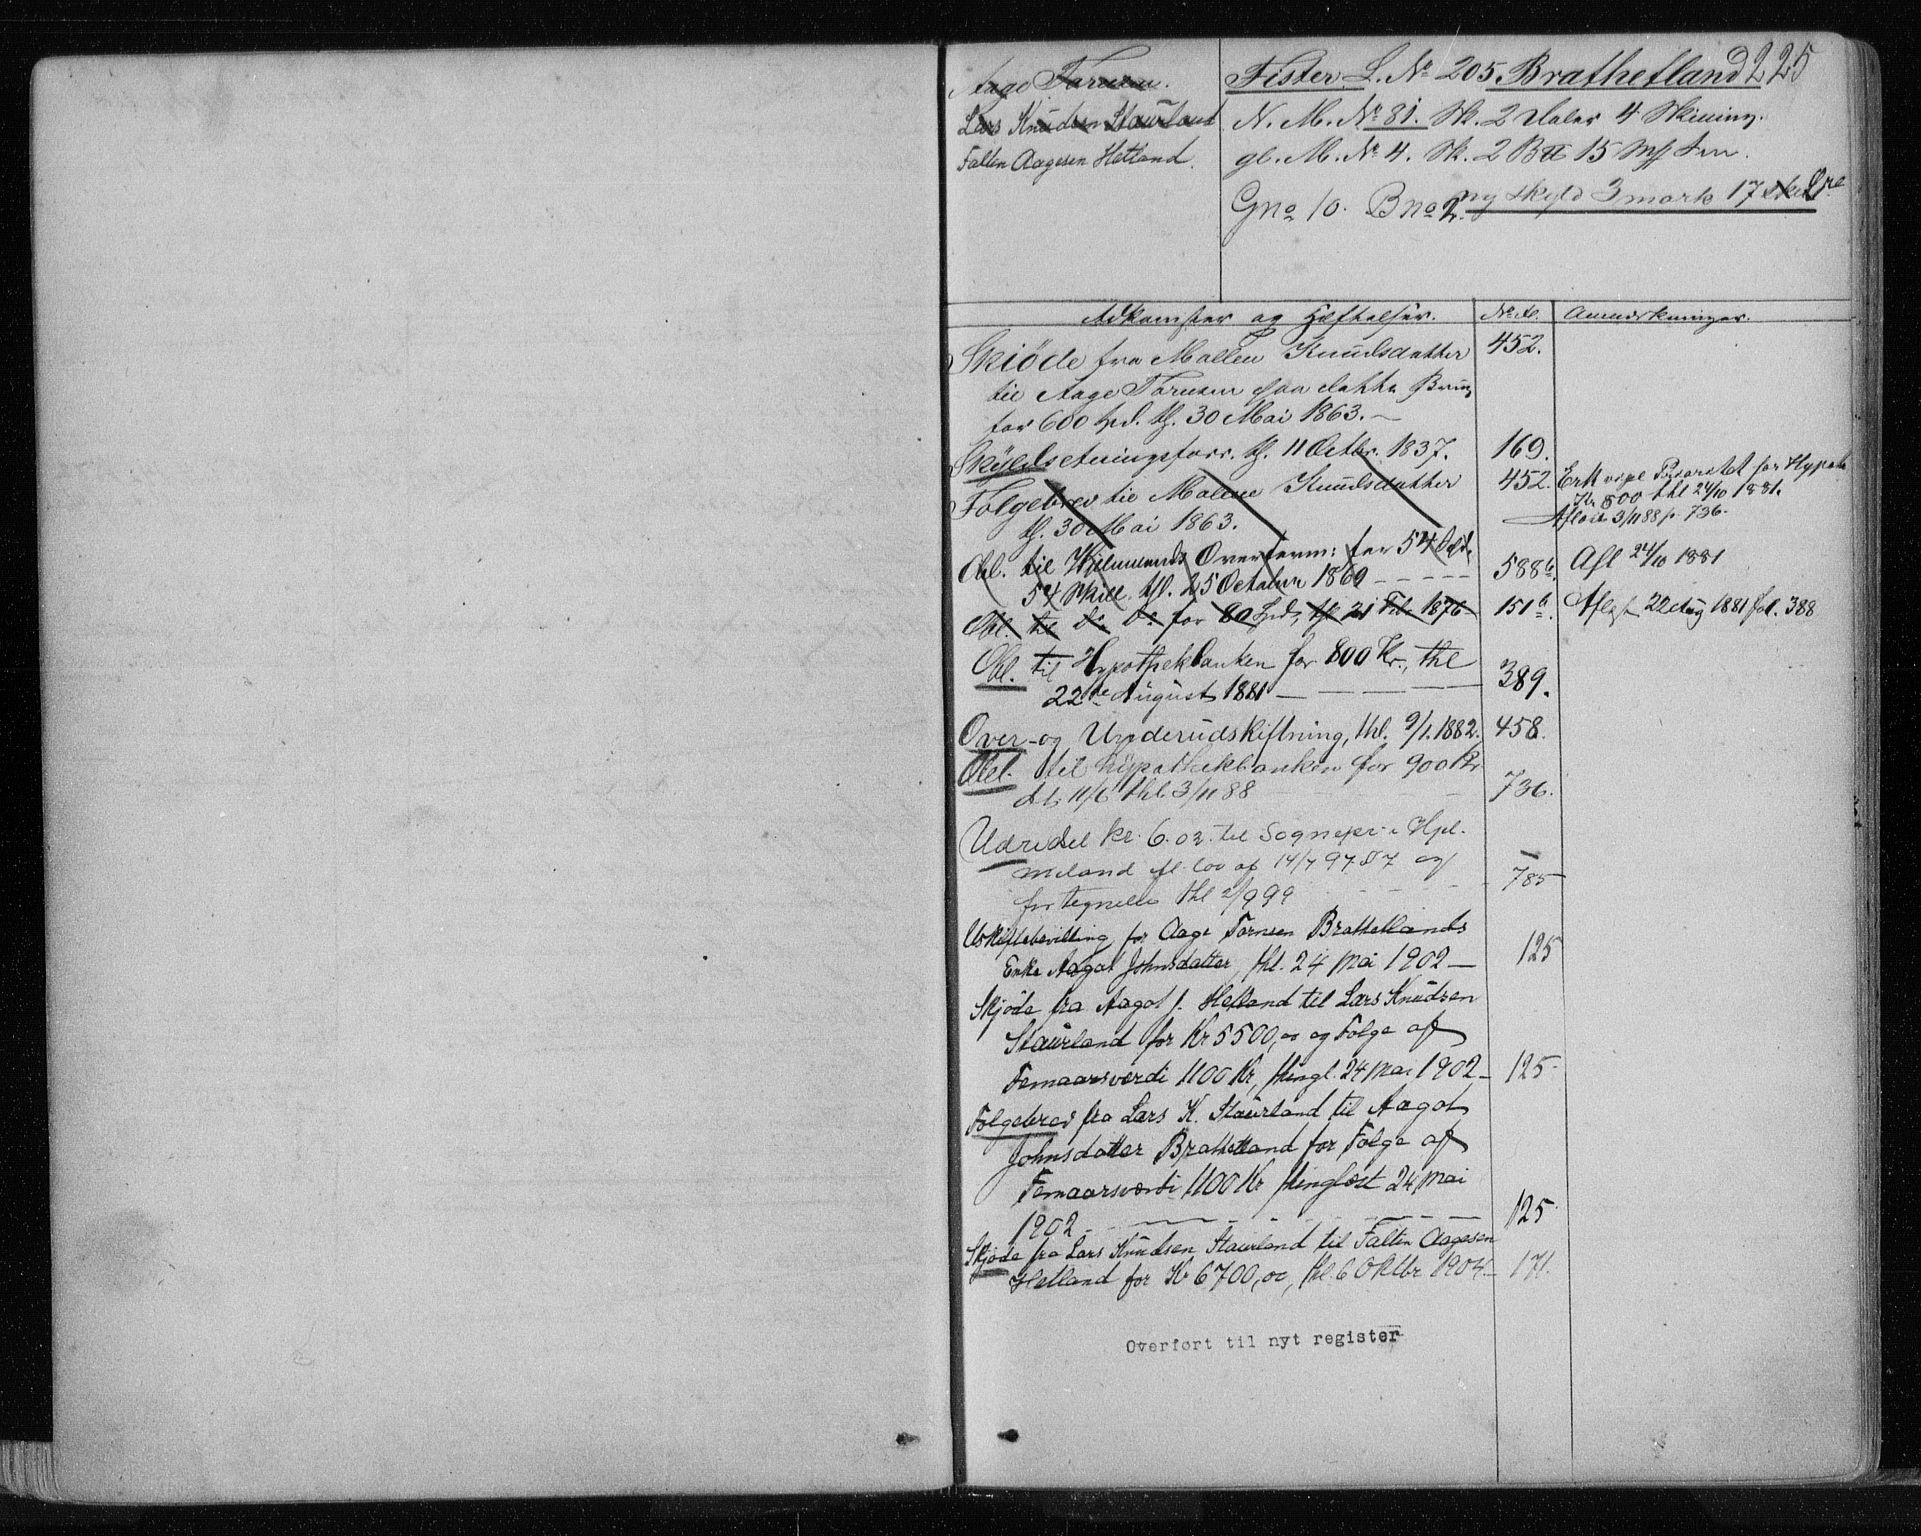 225
Aage Tørresen.
Lars Knudsen Staurland
Falten Aagesen Hetland.
Fister L. No 205. Brathetland
N. M. No 81. Sk. 2 Daler 4 Skilling.
gl. M. No 4. Sk. 2 B 15 Mk
Gno 10. Bno 2. ny skyld 3 mark 17 Øre
Adkomster og Heftelser. No. Anmærkninger.
Skiøde fra Mallen Knudsdatter 452.
til Aage Tørresen paa dette Brug
for 600 Spd. th. 30 Mai 1863.
Skyldsetningsforr. th. 11 Octbr. 1837. 169.
Følgebrev til Malene Knudsdatter 452. Erk vige Prioritet for Hypoth
Kr 800 thl 24/10 1881.
th. 30 Mai 1863. Afløst 3/11 88 p. 736.
Obl. til Hjelmelands Overform: for 54 Spd.
54 Skill. thl. 25 October 1869 588b. Afl 24/10 1881
Obl. til Do. Do. for 80 Spd, th 21 Feb 1876 151b. Aflyst 22 Aug 1881 fol. 388
Obl. til Hypothekbanken for 800 Kr., thl
22de August 1881 389.
Over- og Underudskiftning, thl. 9/1. 1882. 458.
Obl. til hypothekbanken for 900 Kr
dt. 11/6 thl. 3/11 88 736.
Udredsel kr. 6.02 til Sognepr. i Hjel-
meland efl. lov af 14/7 97 § 7 og
fortegnelse thl 2/9 99 785
Uskiftebevilling for Aage Tørresen Brattetlands
Enke Aagot Johnsdatter, thl. 24 Mai 1902 125
Skjøde fra Aagot J. Hetland til Lars Knudsen
Staurland for Kr 5500,00 og Følge af
Femaarsverdi 1100 Kr, thingl. 24 Mai 1902 125
Følgebrev fra Lars K. Staurland til Aagot
Johnsdatter Brattetland for Følge af
Femaarsverdi 1100 Kr thinglæst 24 Mai
1902 125
Skjøde fra Lars Knudsen Staurland til Falten Aagesen
Hetland for Kr 6700,00, thl. 6 Oktbr 1904 171.
Overført til nyt register